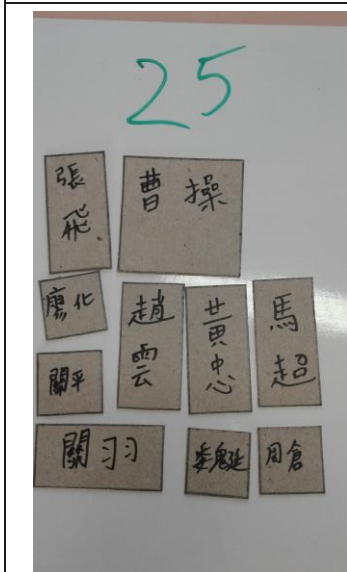 25
張飛
曹操
廖化
趙雲
黃忠
馬超
關平
關羽
魏延
周倉